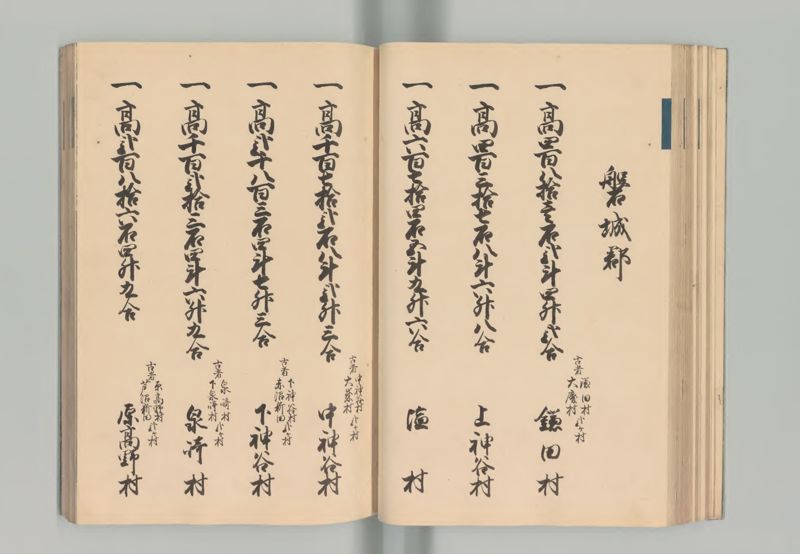 磐城郡
一高四百八拾三石弐斗四升弐合
古者 鎌田村 弐ヶ村
大塵村
鎌田村
一高四百三拾七石八斗六升八合
上神谷村
一高六百七拾四石五斗九升六合
塩村
一高千百七拾弐石八斗弐升三合
古者 中神谷村 弐ヶ村
中神谷村
一高弐千八百三石四斗七升三合
古者 下神谷村 弐ヶ村
赤沼新田
下神谷村
一高千百弐拾三石四斗六升九合
古者 泉崎村 弐ヶ村
下泉崎村
泉崎村
一高弐百八拾六石四升九合
古者 原高野村 弐ヶ村
芦沼新田
原高野村